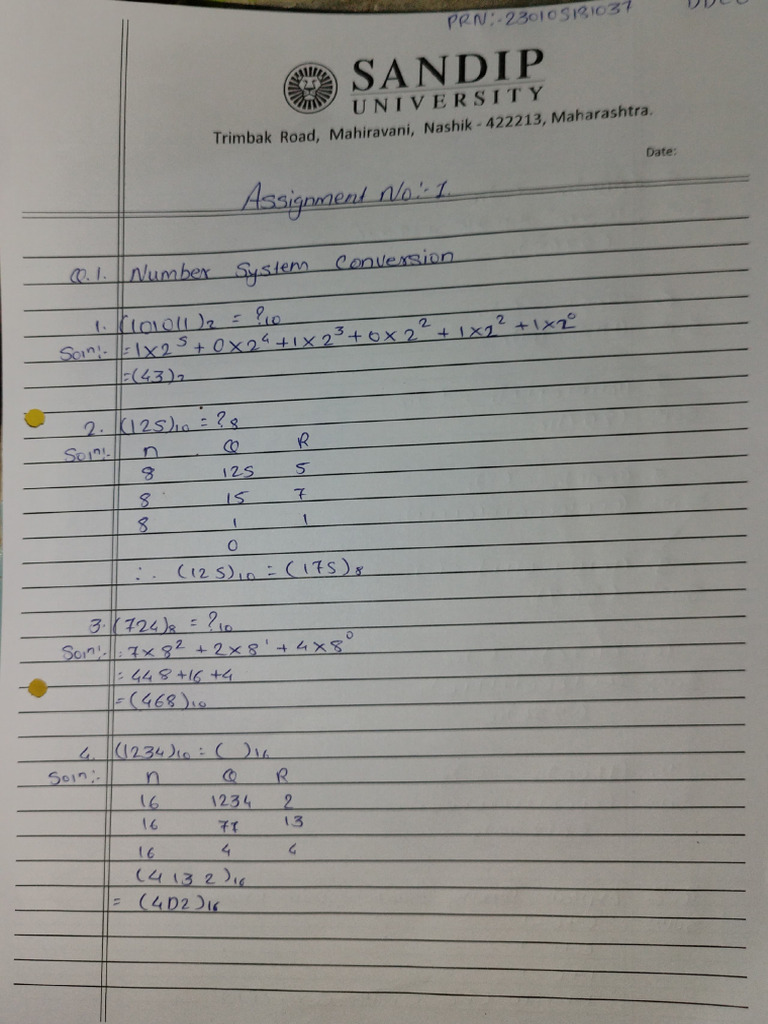 PRN:-230105131037
SANDIP
UNIVERSITY
Trimbak Road, Mahiravani, Nashik - 422213, Maharashtra.
Date:
Assignment No:-1.
Q.1. Number System Conversion
1. (101011)₂ = ?₁₀
Soln:- =1×2⁵+0×2⁴+1×2³+0×2²+1×2²+1×2⁰
=(43)₂
2. (125)₁₀ = ?₈
Soln:- n Q R
8 125 5
8 15 7
8 1 1
0
∴ (125)₁₀ = (175)₈
3. (724)₈ = ?₁₀
Soln:- : 7×8²+2×8¹+4×8⁰
: 448+16+4
=(468)₁₀
4. (1234)₁₀ = ( )₁₆
Soln:- n Q R
16 1234 2
16 77 13
16 4 4
(4 13 2)₁₆
= (4D2)₁₆